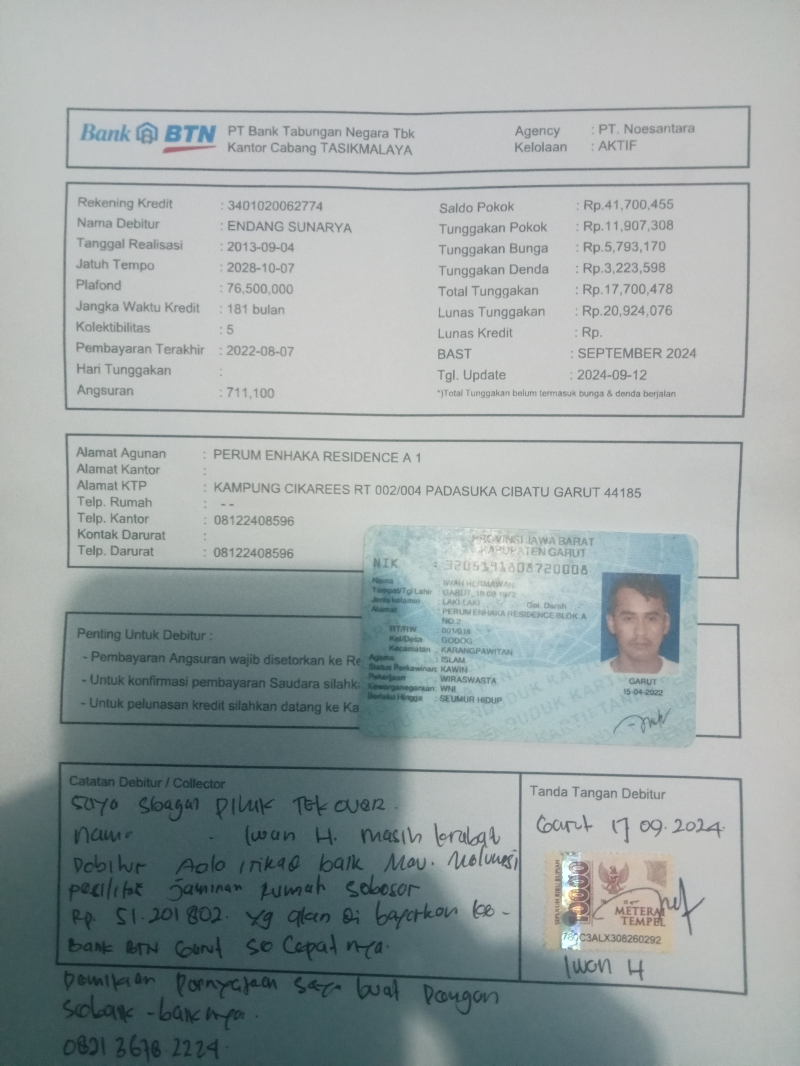 Bank BTN
PT Bank Tabungan Negara Tbk
Kantor Cabang TASIKMALAYA
Agency : PT. Noesantara
Kelolaan : AKTIF
Rekening Kredit : 3401020062774
Nama Debitur : ENDANG SUNARYA
Tanggal Realisasi : 2013-09-04
Jatuh Tempo : 2028-10-07
Plafond : 76,500,000
Jangka Waktu Kredit : 181 bulan
Kolektibilitas : 5
Pembayaran Terakhir : 2022-08-07
Hari Tunggakan :
Angsuran : 711,100
Saldo Pokok : Rp.41,700,455
Tunggakan Pokok : Rp.11,907,308
Tunggakan Bunga : Rp.5,793,170
Tunggakan Denda : Rp.3,223,598
Total Tunggakan : Rp.17,700,478
Lunas Tunggakan : Rp.20,924,076
Lunas Kredit : Rp.
BAST : SEPTEMBER 2024
Tgl. Update : 2024-09-12
*)Total Tunggakan belum termasuk bunga & denda berjalan
Alamat Agunan : PERUM ENHAKA RESIDENCE A 1
Alamat Kantor :
Alamat KTP : KAMPUNG CIKAREES RT 002/004 PADASUKA CIBATU GARUT 44185
Telp. Rumah : - -
Telp. Kantor : 08122408596
Kontak Darurat :
Telp. Darurat : 08122408596
PROVINSI JAWA BARAT
KABUPATEN GARUT
NIK : 3205191608720008
Nama : IWAN HERMAWAN
Tempat/Tgl Lahir : GARUT,
Jenis kelamin : LAKI-LAKI Gol. Darah
Alamat : PERUM ENHAKA RESIDENCE BLOK A
NO.2
RT/RW : 001/018
Kel/Desa : GODOG
Kecamatan : KARANGPAWITAN
Agama : ISLAM
Status Perkawinan: KAWIN
Pekerjaan : WIRASWASTA
Kewarganegaraan: WNI
Berlaku Hingga : SEUMUR HIDUP
GARUT
15-04-2022
Penting Untuk Debitur :
- Pembayaran Angsuran wajib disetorkan ke Re
- Untuk konfirmasi pembayaran Saudara silahk
- Untuk pelunasan kredit silahkan datang ke Ka
Catatan Debitur / Collector
Saya sbagai Pihak Tek over.
Nama . Iwan H. masih krabat
Debitur Ada itikad baik Mau. Melunasi
pasilitas jaminan rumah sebesar
Rp. 51.201802. yg akan di bayarkan ke -
Bank BTN Garut se Cepat nya.
Demikian Pernyataan saya buat Dengan
sebaik - baik nya.
0821 3678 2224.
Tanda Tangan Debitur
Garut 17 09.2024.
SEPULUH RIBU RUPIAH
10000
METERAI
TEMPEL
C3ALX308260292
Iwan H